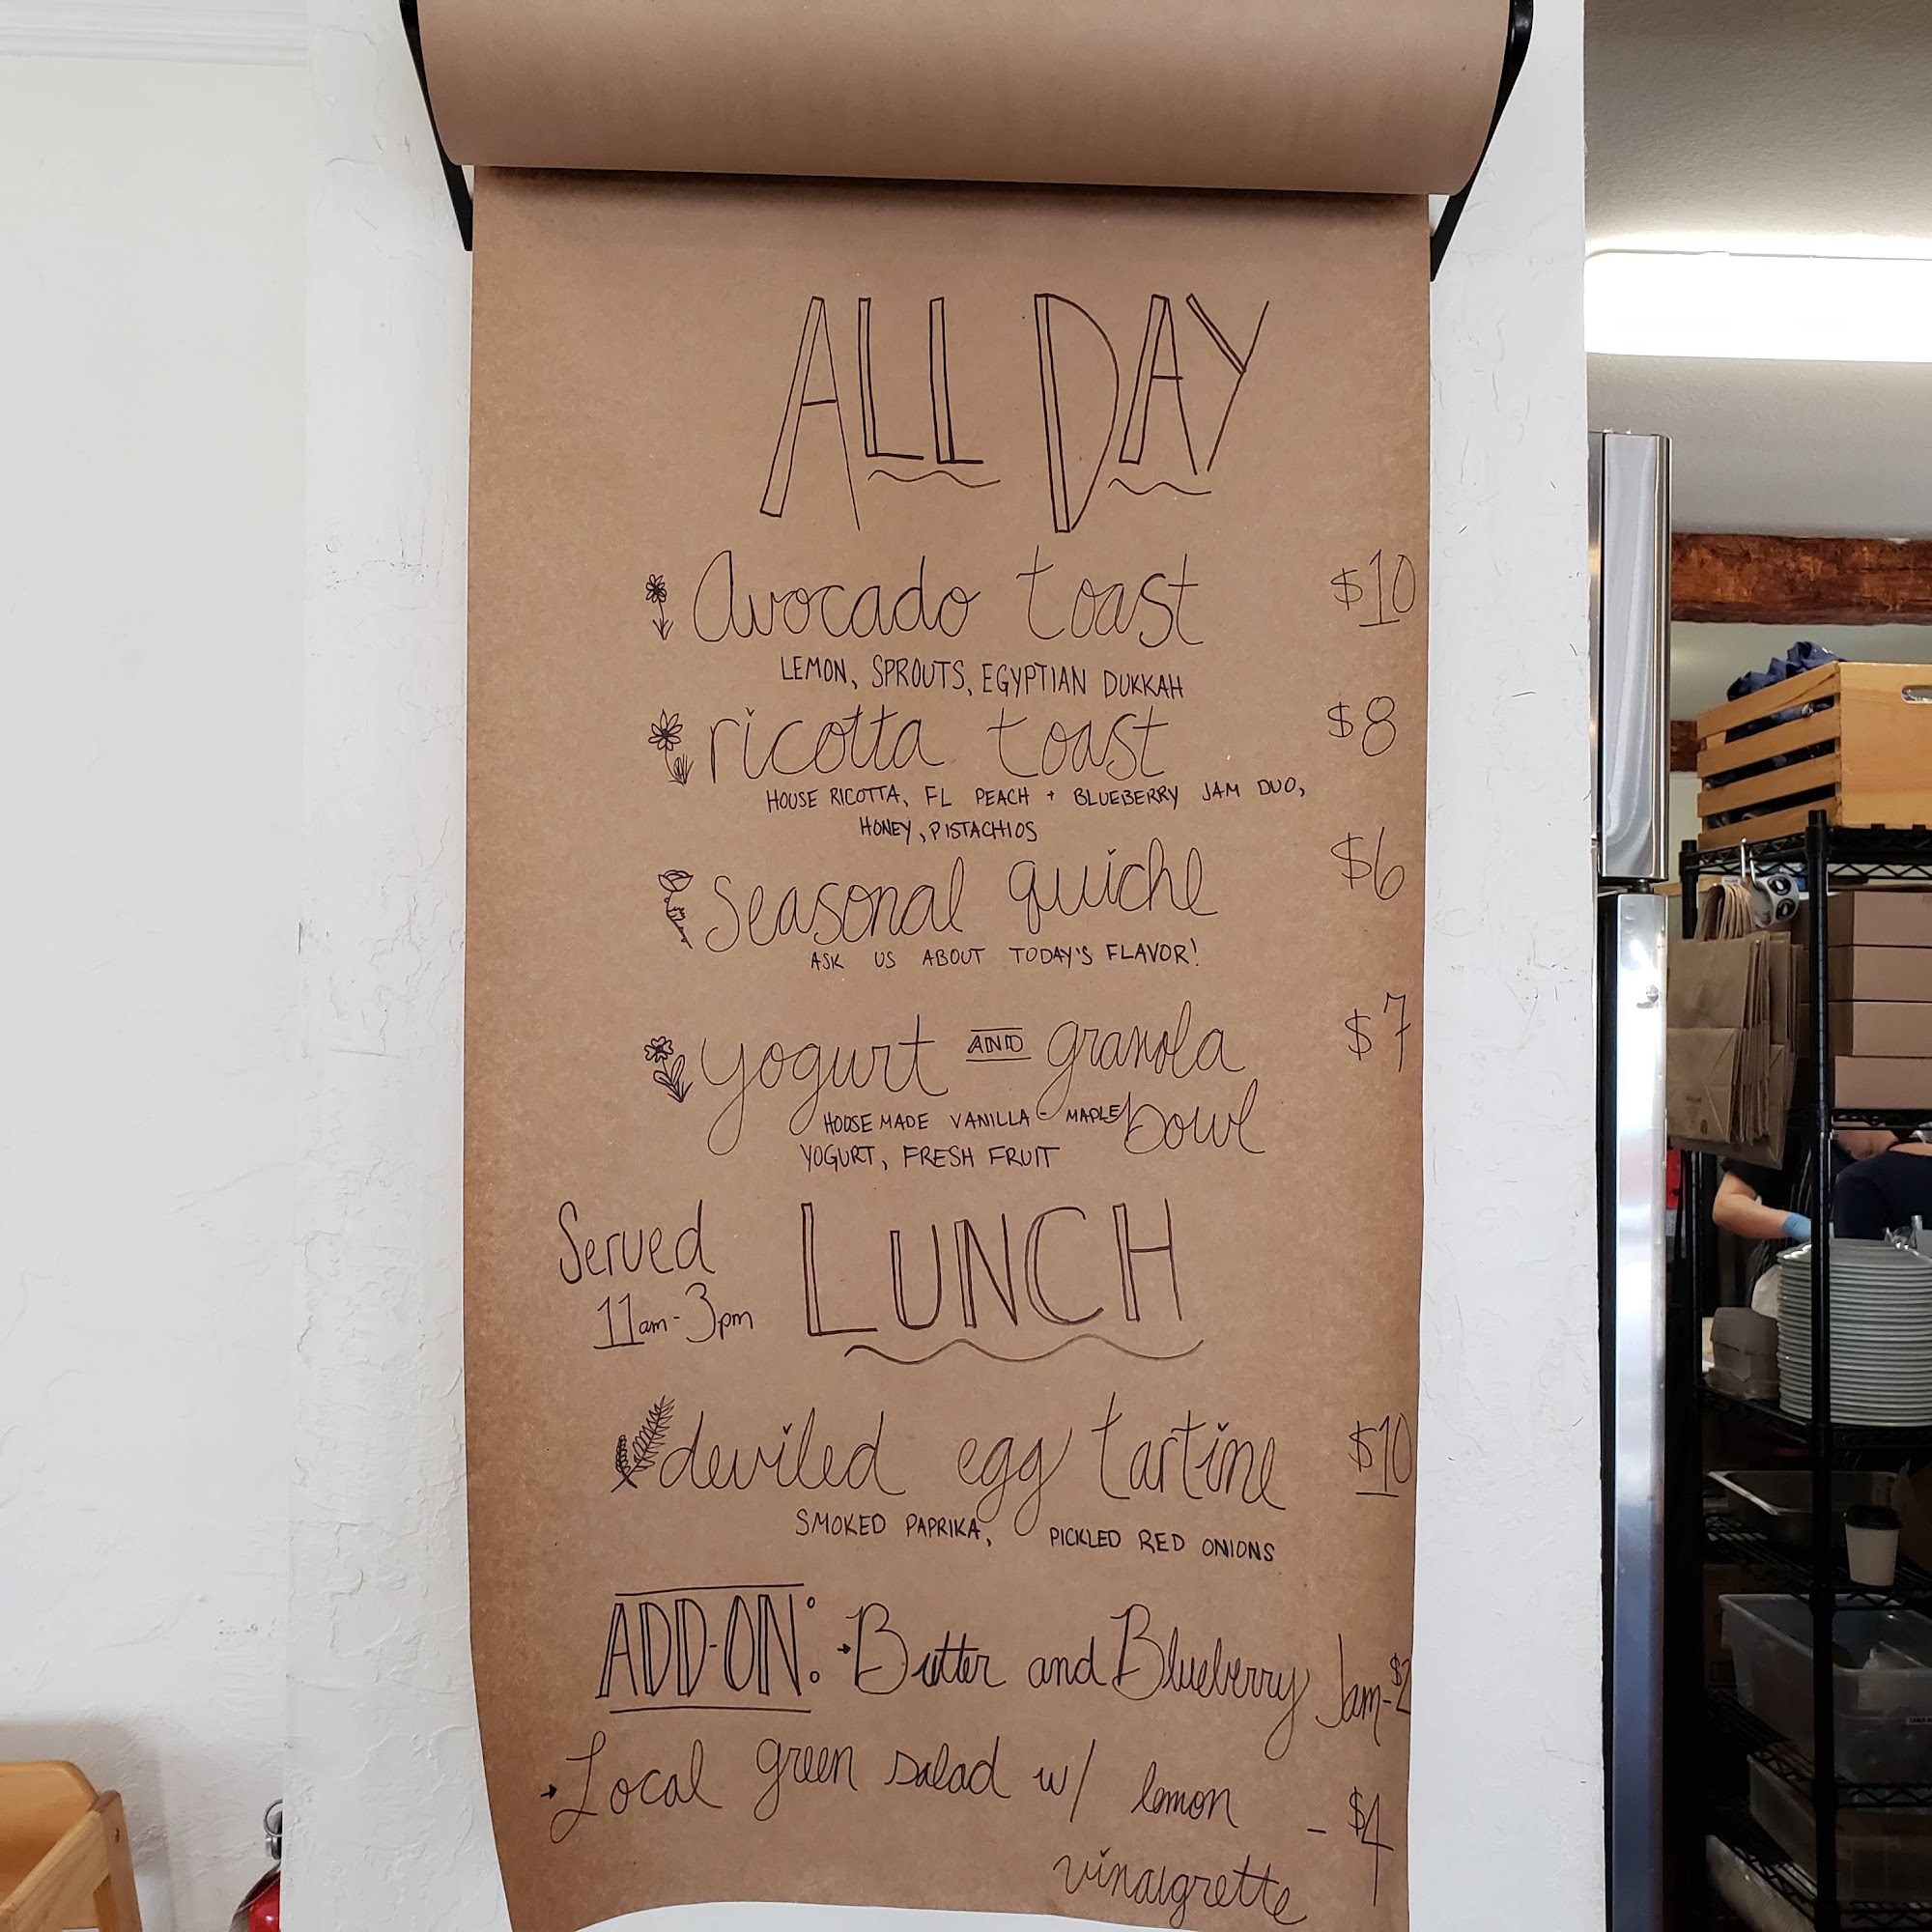 ALL DAY
Avocado toast $10
LEMON, SPROUTS, EGYPTIAN DUKKAH
ricotta toast $8
HOUSE RICOTTA, FL PEACH + BLUEBERRY JAM DUO,
HONEY, PISTACHIOS
Seasonal quiche $6
ASK US ABOUT TODAY'S FLAVOR!
yogurt AND granola $7
bowl
HOUSE MADE VANILLA - MAPLE
YOGURT, FRESH FRUIT
Served
11am-3pm
LUNCH
deviled egg tartine $10
SMOKED PAPRIKA, PICKLED RED ONIONS
ADD-ON: Butter and Blueberry Jam-$2
Local green salad w/ lemon - $4
vinaigrette